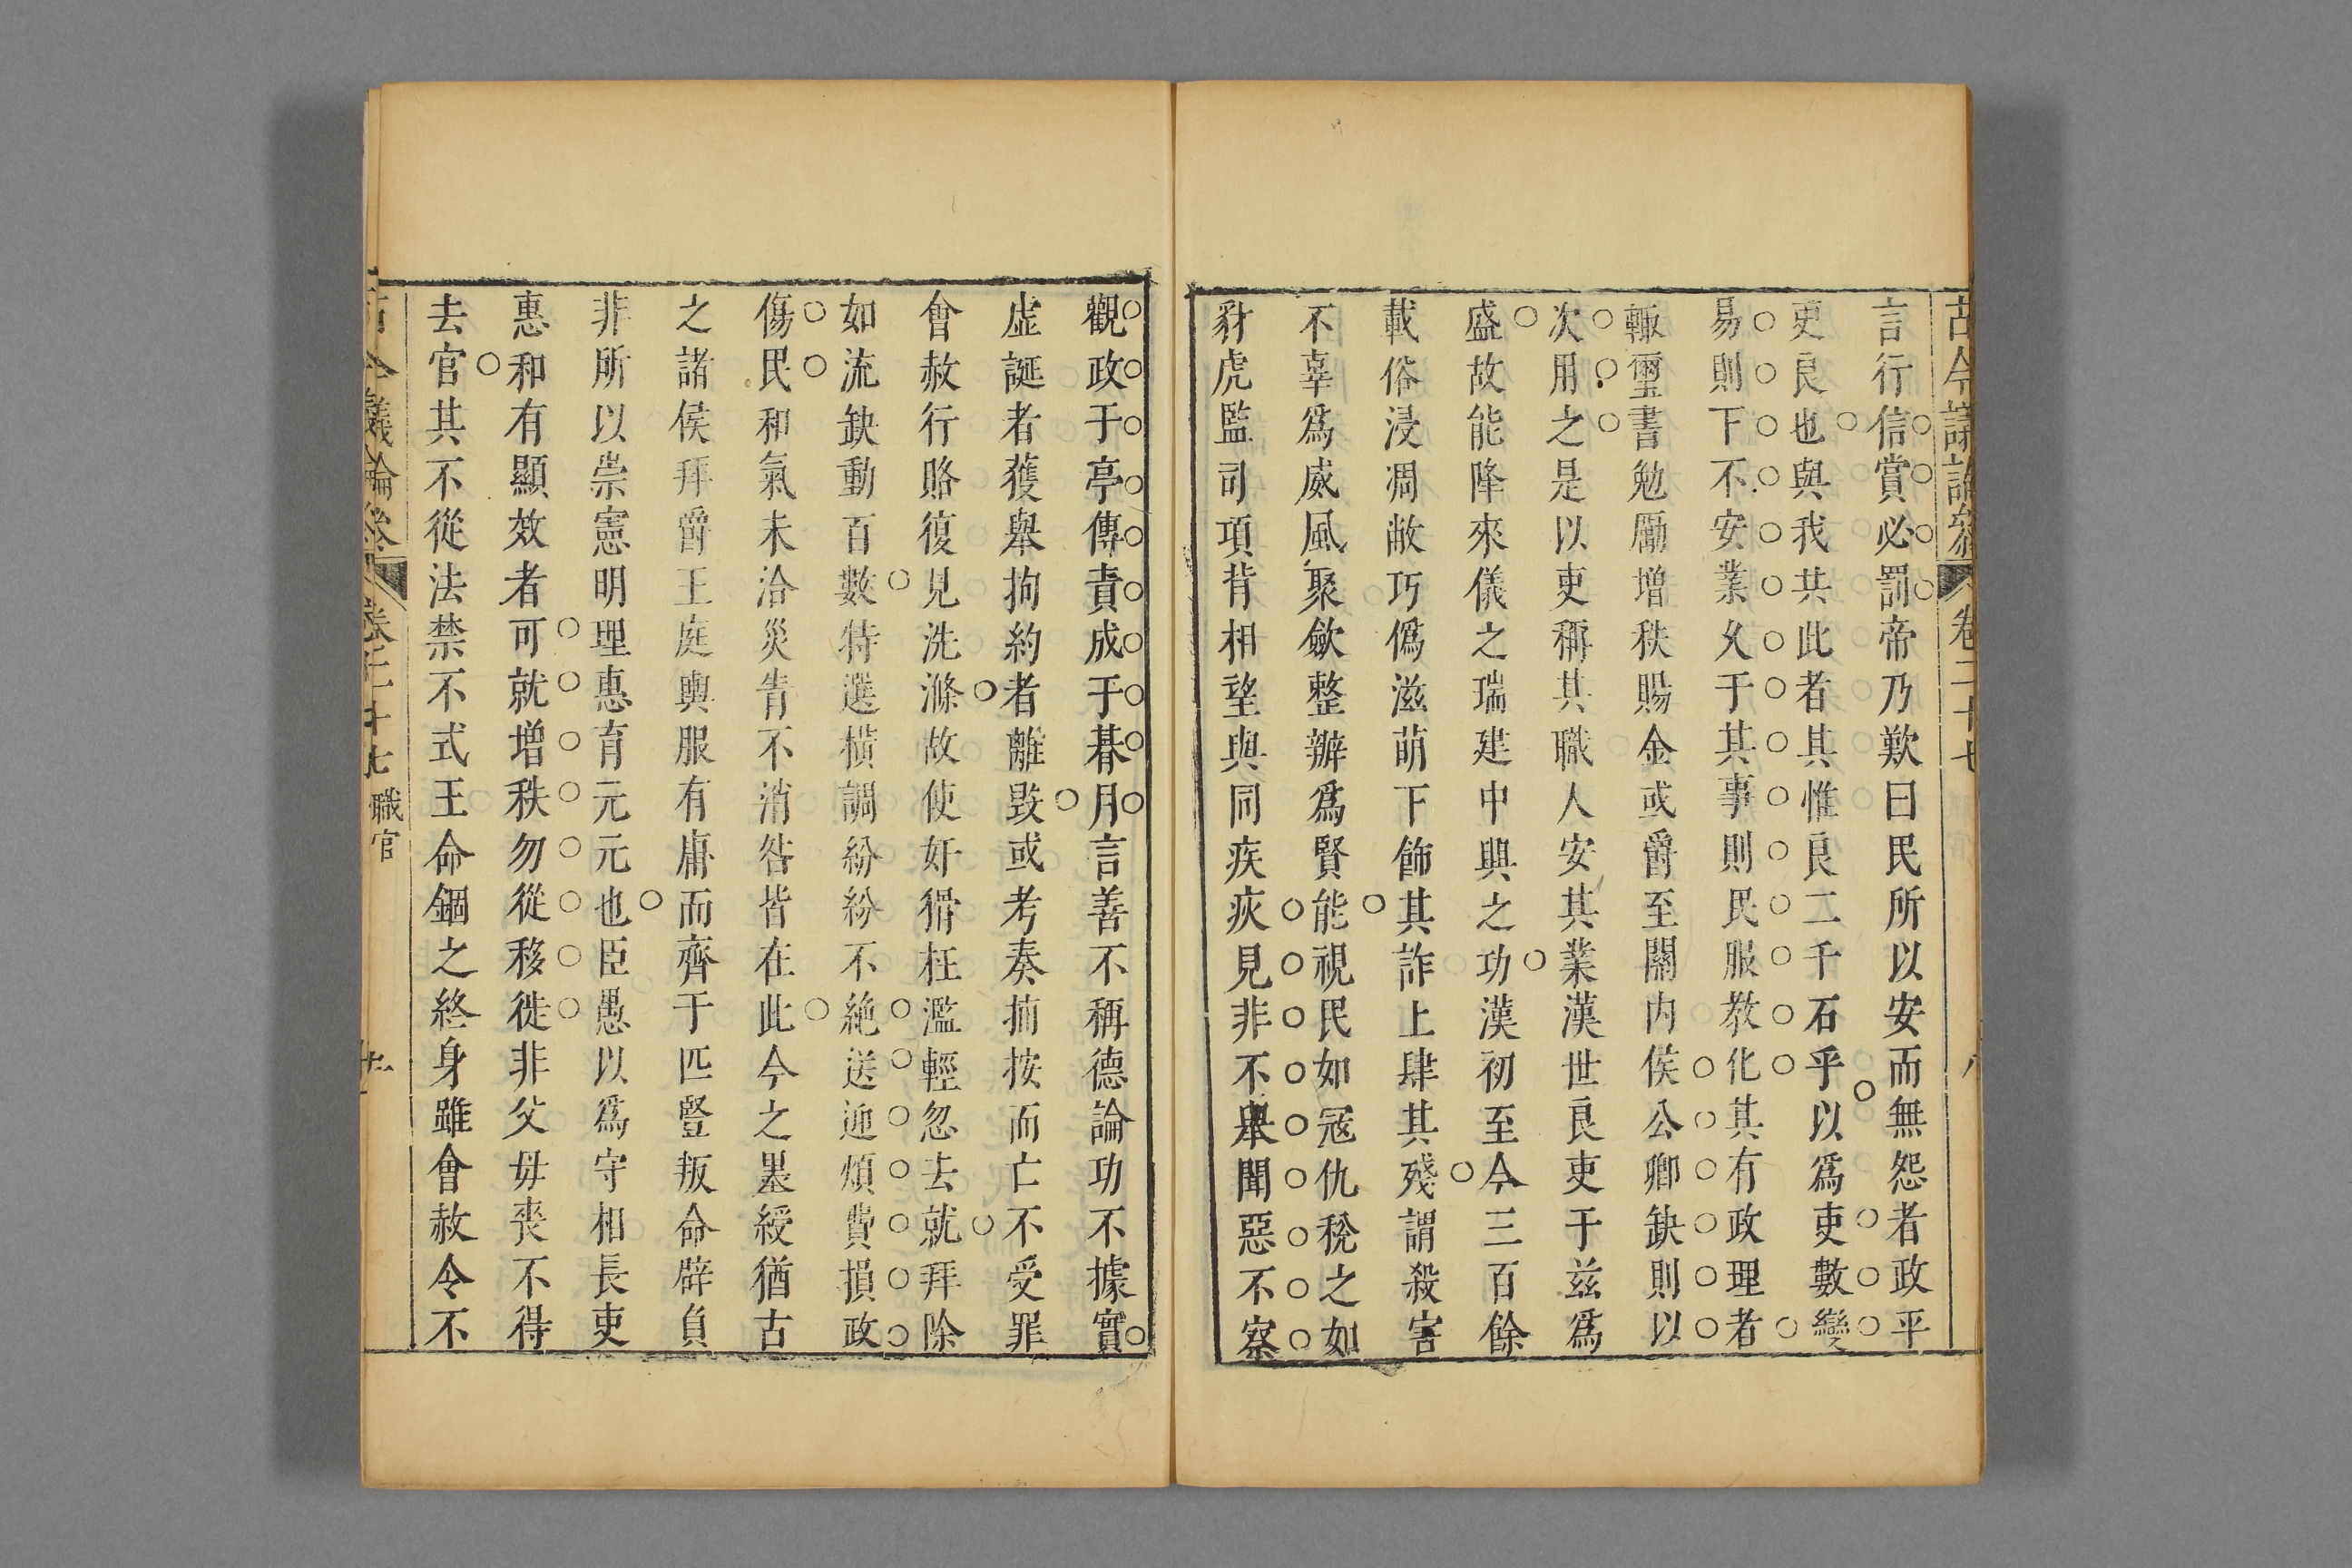 古今議論參
卷二十七
言行信賞必罰帝乃歎曰民所以安而無怨者政平
吏良也與我共此者其惟良二千石乎以爲吏數變
易則下不安業久于其事則民服教化其有政理者
輙璽書勉勵增秩賜金或爵至關内侯公卿缺則以
次用之是以吏稱其職人安其業漢世良吏于兹爲
盛故能降來儀之瑞建中興之功漢初至今三百餘
載俗浸凋敝巧僞滋萌下飾其詐上肆其殘謂殺害
不辜爲威風聚斂整辦爲賢能視民如冦仇稅之如
豺虎監司項背相望與同疾疢見非不舉聞惡不察
觀政于亭傳責成于朞月言善不稱德論功不據實
虛誕者獲舉拘約者離毀或考奏捕按而亡不受罪
會赦行賂復見洗滌故使奸猾枉濫輕忽去就拜除
如流缺動百數特選橫調紛紛不絶送迎煩費損政
傷民和氣未洽災眚不消咎皆在此今之墨綬猶古
之諸侯拜爵王庭輿服有庸而齊于匹豎叛命辟負
非所以崇憲明理惠育元元也臣愚以爲守相長吏
惠和有顯效者可就增秩勿從移徙非父毋喪不得
去官其不從法禁不式王命錮之終身雖會赦令不
古今議論參
卷二十七
職官